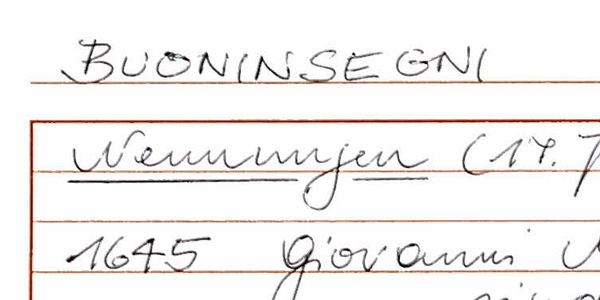 BUONINSEGNI
Nennungen (17.
1645 Giovanni